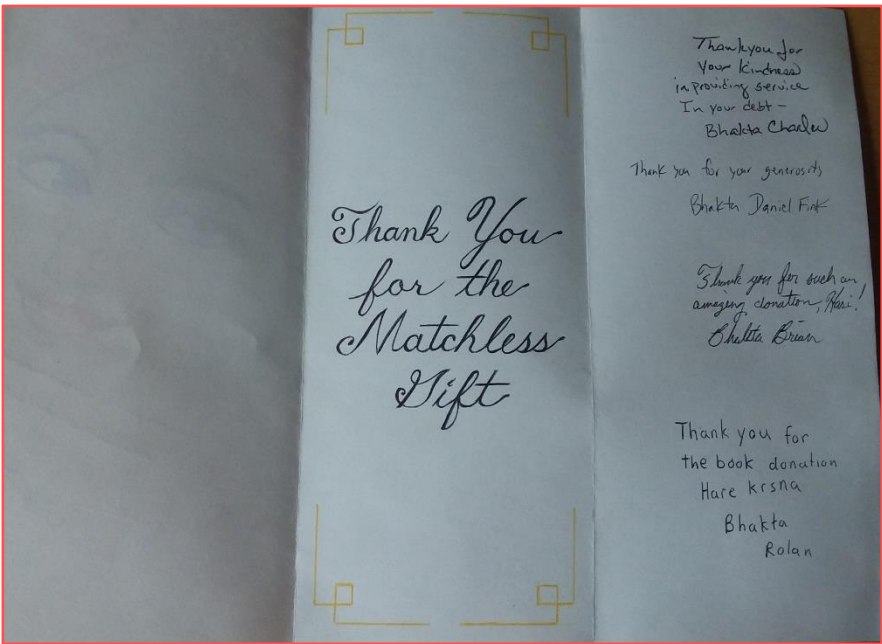 Thank You
for the
Matchless
Gift
Thankyou for
Your Kindness
in providing service
In your debt –
Bhakta Charles
Thank you for your generosity
Bhakta Daniel Fink
Thank you for such an
amazing donation, Hari!
Bhakta Brian
Thank you for
the book donation
Hare krsna
Bhakta
Rolan